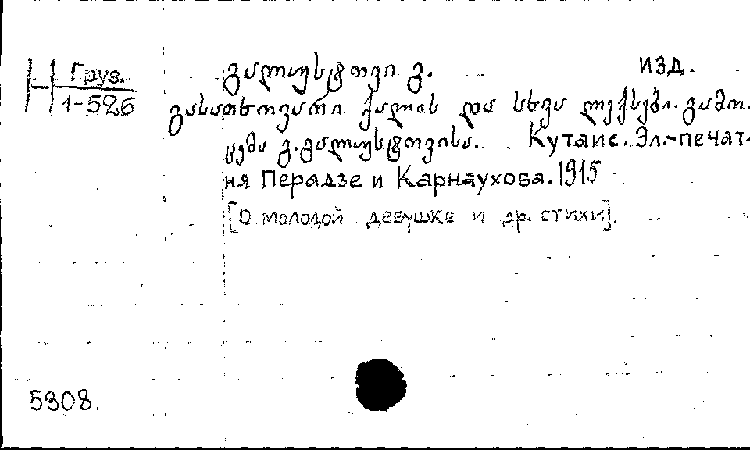 Н Груз.
1-526
გალუსტოვი გ. изд.
გასათხოვარი ქალის და სხვა ლექსები. გამო.
ცემა გ. გალუსტოვისა. Кутаис. Эл.-печат.
ня Перадзе и Карнаухова. 1915
[О молодой девушке и др. стихи].
5308.